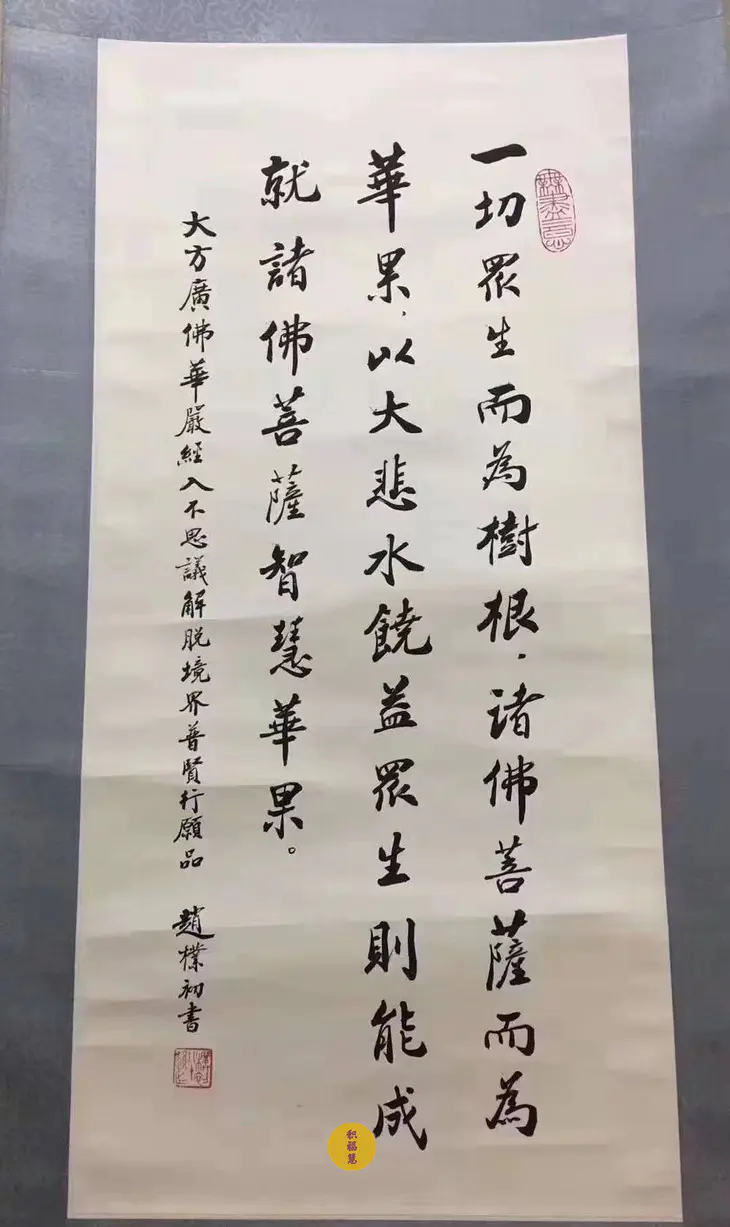 一切眾生而為樹根，諸佛菩薩而為
華果，以大悲水饒益眾生則能成
就諸佛菩薩智慧華果。
大方廣佛華嚴經入不思議解脱境界普賢行願品 趙樸初書
积福慧